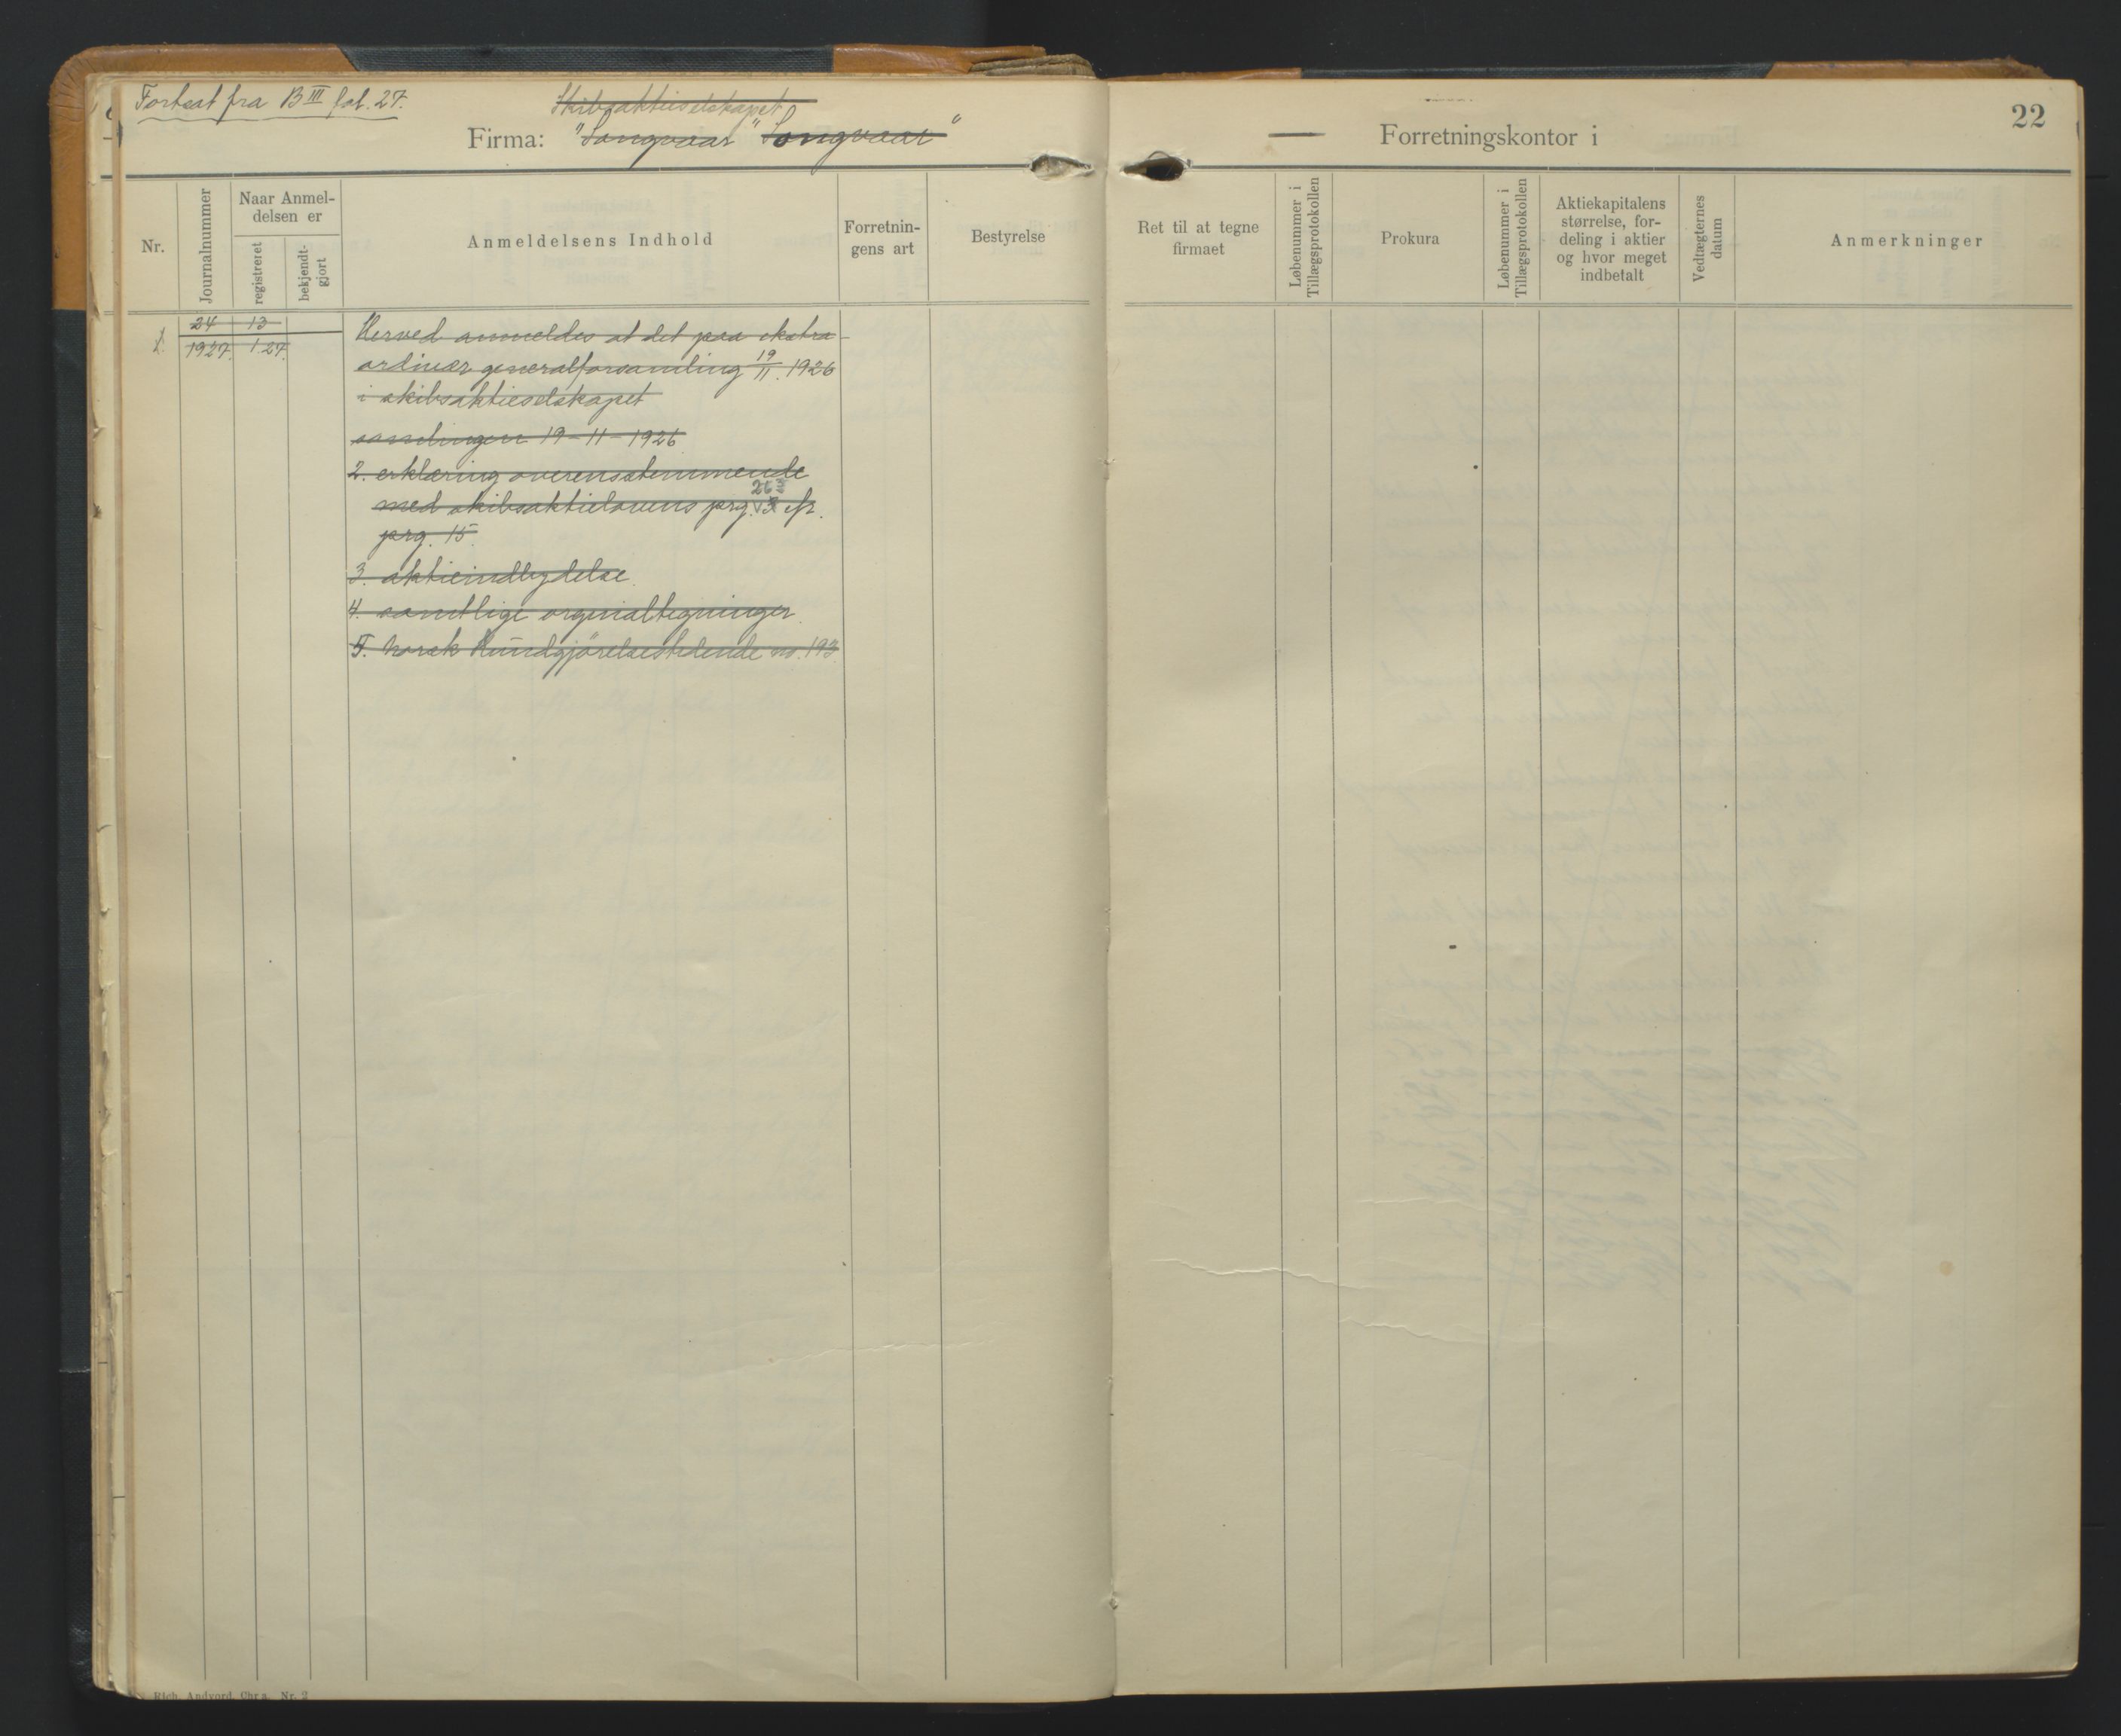 Fortsat fra B III fol. 27.
Skibsaktieselskapet
Firma: "Songvaar" "Songvaar"
Forretningskontor i
22
Nr.
Journalnummer
Naar Anmel-
delsen er
registreret
bekjendt-
gjort
Anmeldelsens Indhold
Forretnin-
gens art
Bestyrelse
Ret til at tegne
firmaet
Løbenummer i
Tillægsprotokollen
Prokura
Løbenummer i
Tillægsprotokollen
Aktiekapitalens
størrelse, for-
deling i aktier
og hvor meget
indbetalt
Vedtægternes
datum
Anmerkninger
24 13
1927. 1 27.
Herved anmeldes at det paa ekstra-
ordinær generalforsamling 19/11. 1926
i skibsaktieselskapet
samlingen 19-11-1926
2. erklæring overensstemmende
med skibsaktielovens prg. 3 cfr.
prg. 15.
3. aktieindbydelse.
4. samtlige orginaltegninger.
5. Norsk Kundgjörelsestidende no. 193
Rich. Andvord, Chr.a. Nr. 2